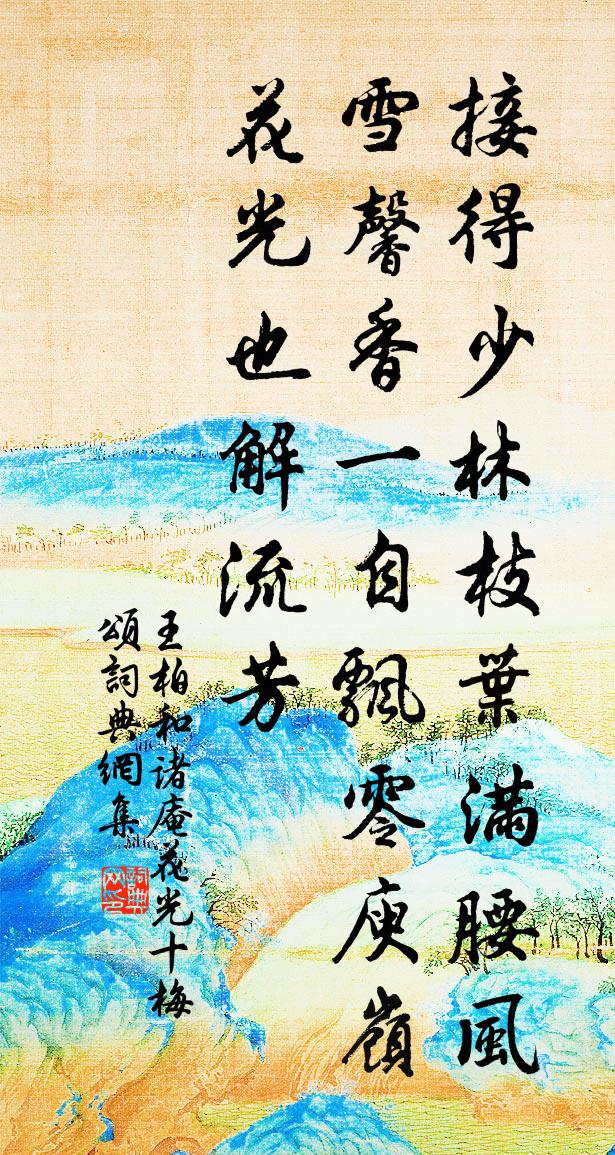 接得少林枝葉滿腰風
雪馨香一自飄零庾嶺
花光也解流芳
王柏和諸庵花光十梅
頌詞典網集